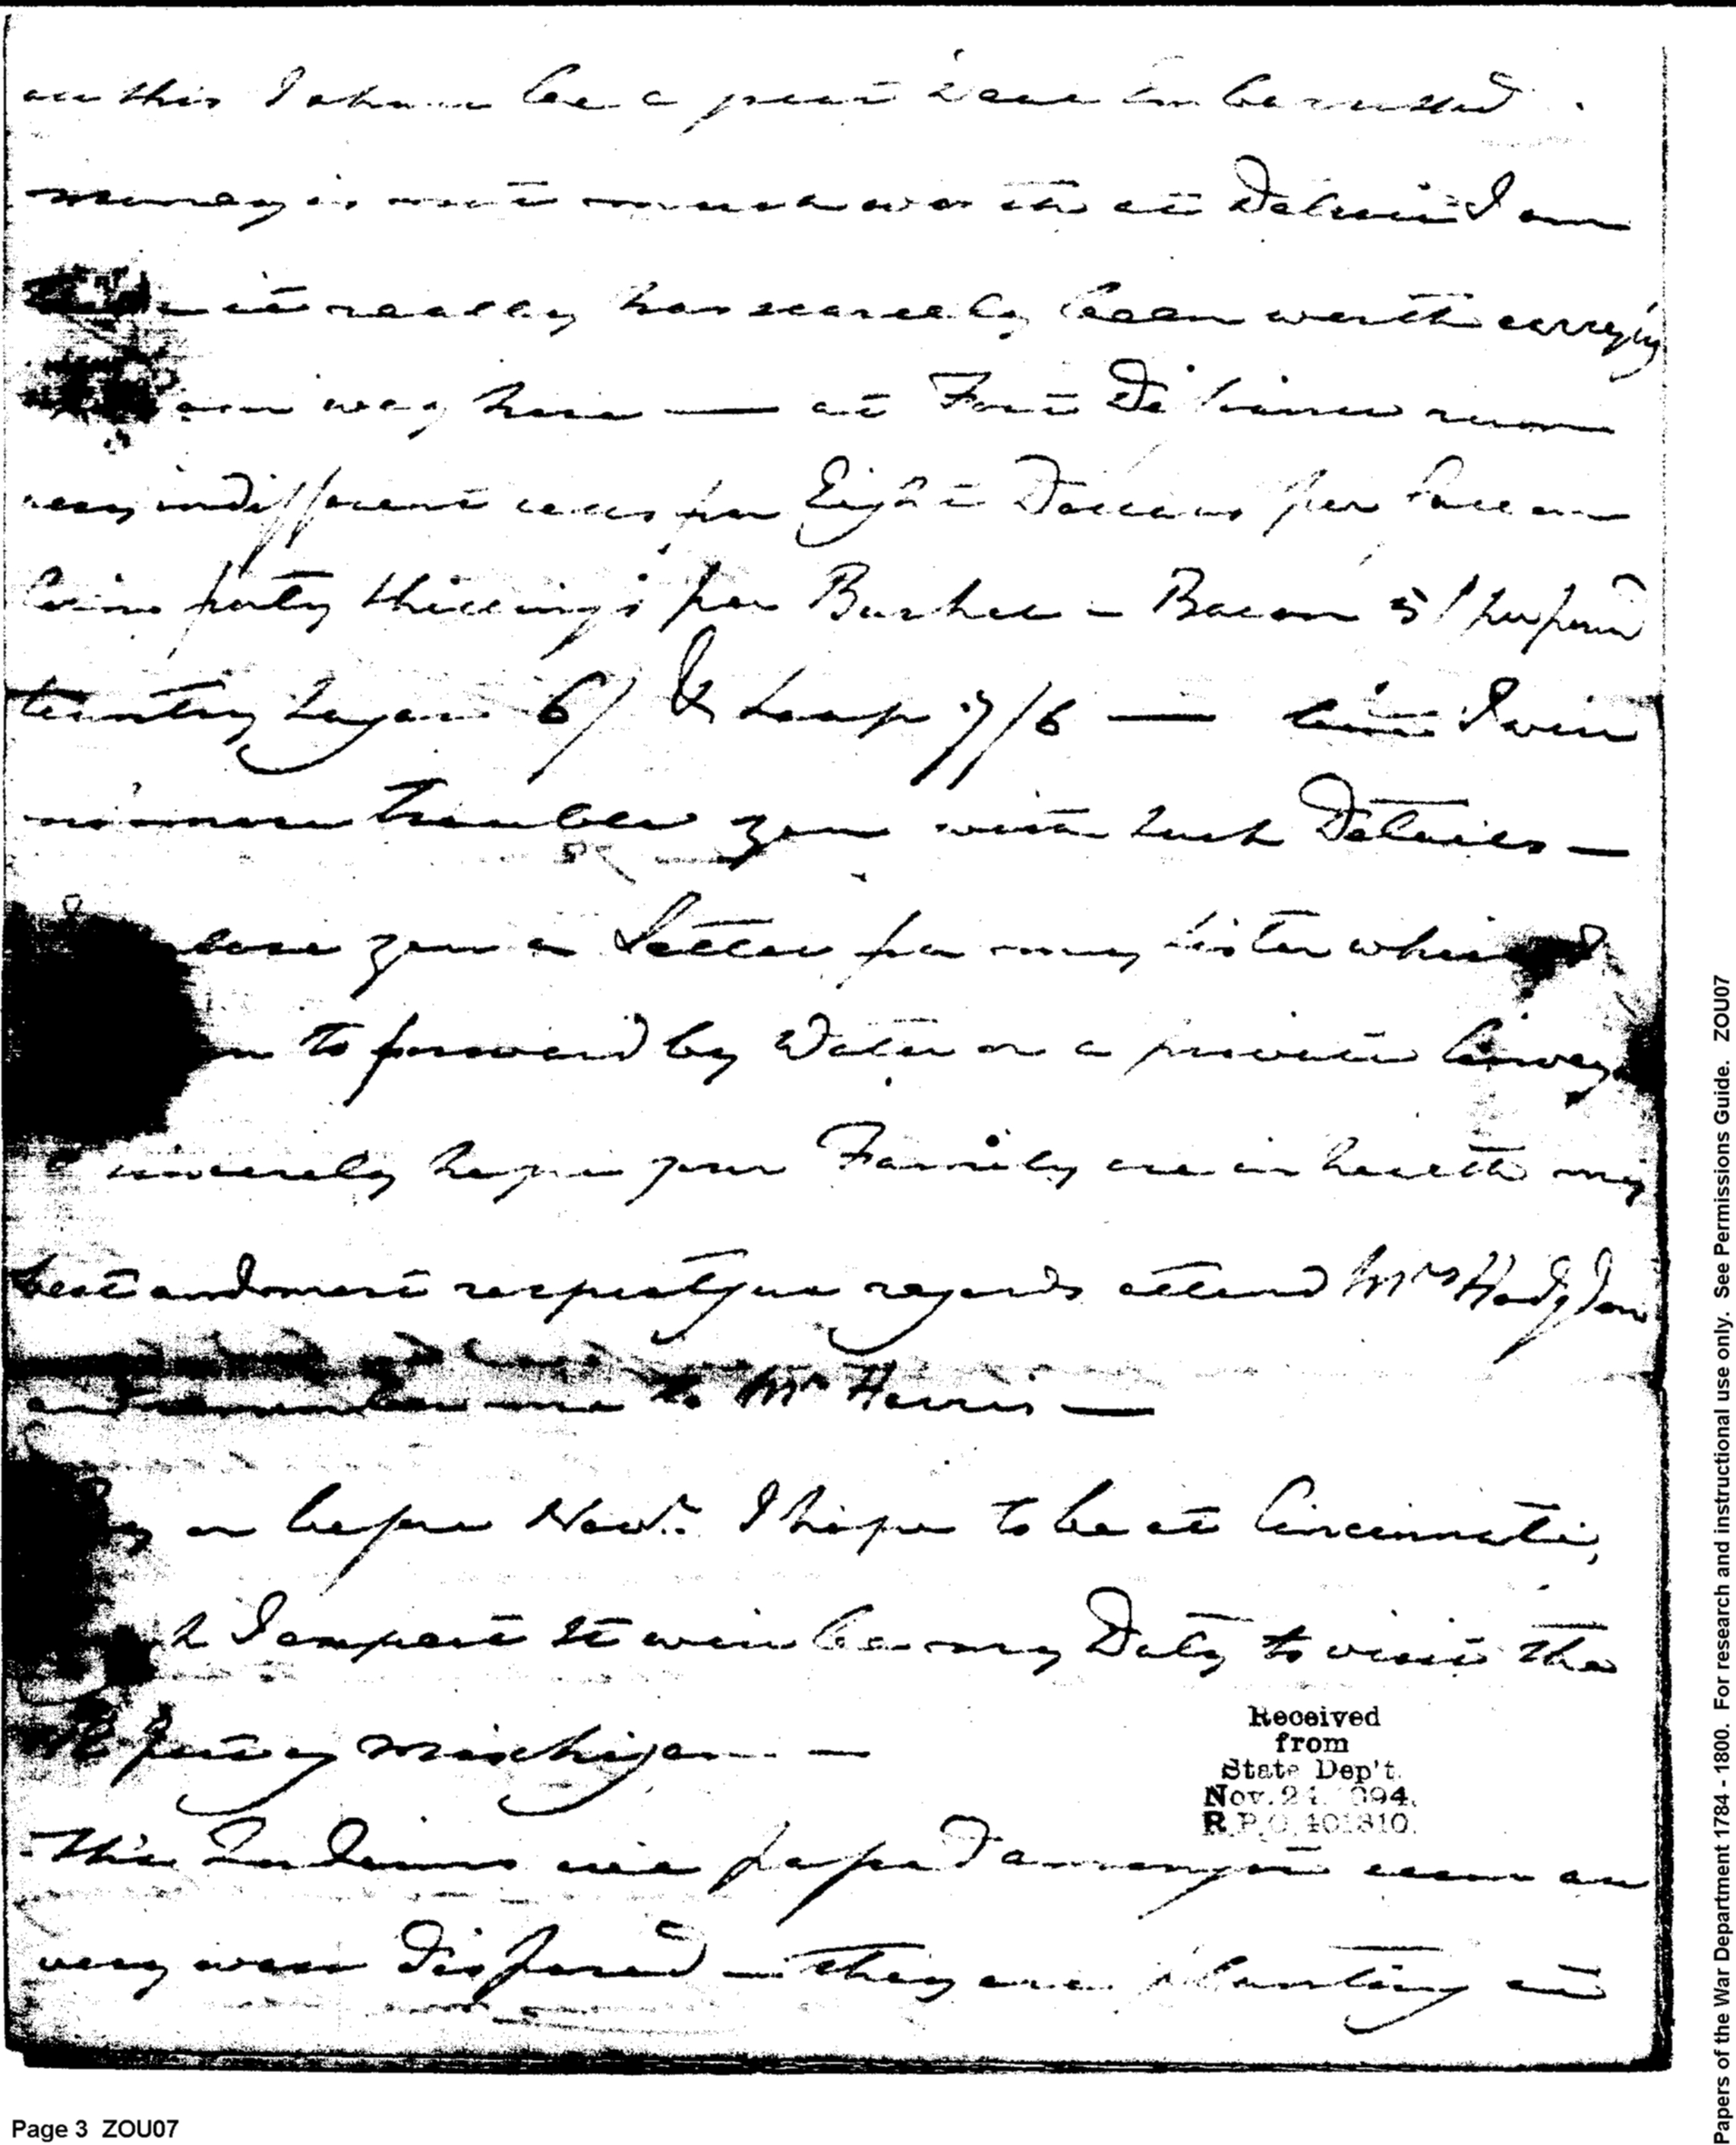 all this I shall be a great deal Embarrassed.
money is not much worth at Detroit I am
it really has scarcely been worth carrying
own way here — at Fort Defiance rum
very indifferent sells for Eight Dollars per Gallon
Corn forty Shillings per Bushel – Bacon 5/ per pound
Country Sugar 6/ & Soap 7/6 — but I will
no more trouble you with such Details —
you a Letter for my Sister which
to forward by Water or a private Convey
I sincerely hope your Family are in health my
best and most respectful regards attend Mrs Hodgdon
and remember me to Mr Harris —
or before Novr. I hope to be at Cincinnati,
I expect it will be my Duty to visit the
of Michigan —
The Indians we passed amongst seem all
very well Disposed — they are planting at
Received
from
State Dep't.
Nov. 24. 1894.
R.P.O. 401310.
Page 3 ZOU07
Papers of the War Department 1784 - 1800. For research and instructional use only. See Permissions Guide. ZOU07